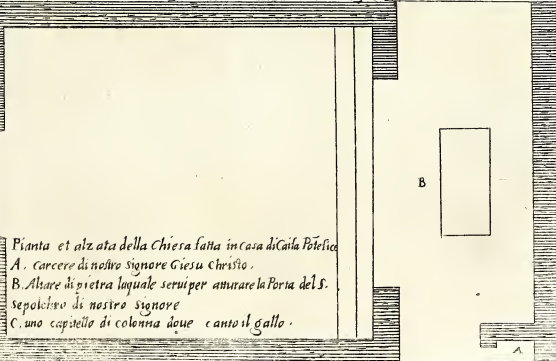 Pianta et alzata della Chiesa fatta in casa di Caifa Põtefice
A. Carcere di nostro signore Giesu Christo.
B. Altare di pietra laquale serui per atturare la Porta del S.
sepolchro di nostro signore
C. uno capitello di colonna doue canto il gallo.
B
A